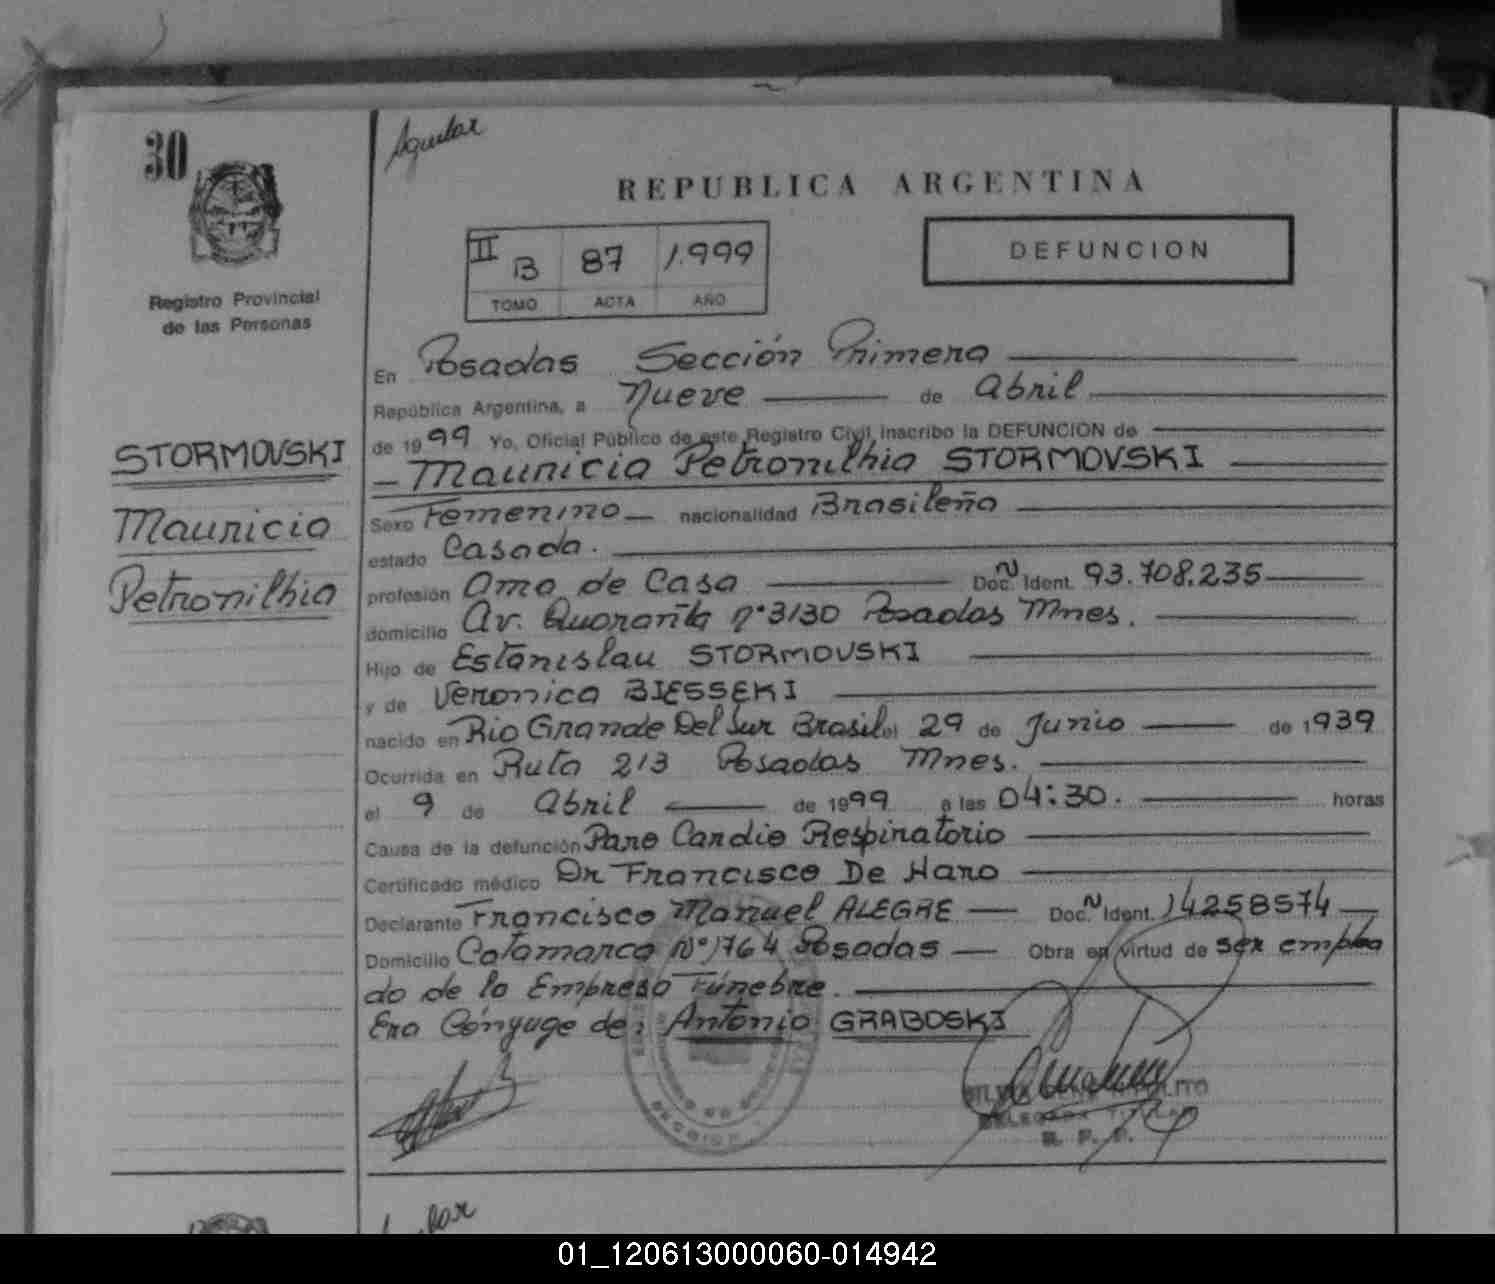 30
Aguilar
REPUBLICA ARGENTINA
II B 87 1.999
TOMO ACTA AÑO
DEFUNCION
Registro Provincial
de las Personas
STORMOVSKI
Mauricia
Petronilhia
En Posadas Sección Primera
República Argentina, a Nueve de Abril
de 1999 Yo, Oficial Público de este Registro Civil inscribo la DEFUNCION de
Mauricia Petronilhia STORMOVSKI
Sexo Femenino nacionalidad Brasileña
estado Casada.
profesión Ama de Casa Doc. N Ident. 93.708.235
domicilio Av. Quaranta nº 3130 Posadas Mnes.
Hijo de Estanislau STORMOVSKI
y de Veronica BIESSEKI
nacido en Rio Grande Del Sur Brasil el 29 de Junio de 1939
Ocurrida en Ruta 213 Posadas Mnes.
el 9 de Abril de 1999 a las 04:30. horas
Causa de la defunción Paro Cardio Respiratorio
Certificado médico Dr Francisco De Haro
Declarante Francisco Manuel ALEGRE Doc. N Ident. 14258574
Domicilio Catamarca Nº 1764 Posadas Obra en virtud de ser emplea
do de la Empresa Fúnebre.
Era Cónyuge de: Antonio GRABOSKI
R. P. P.
01_120613000060-014942